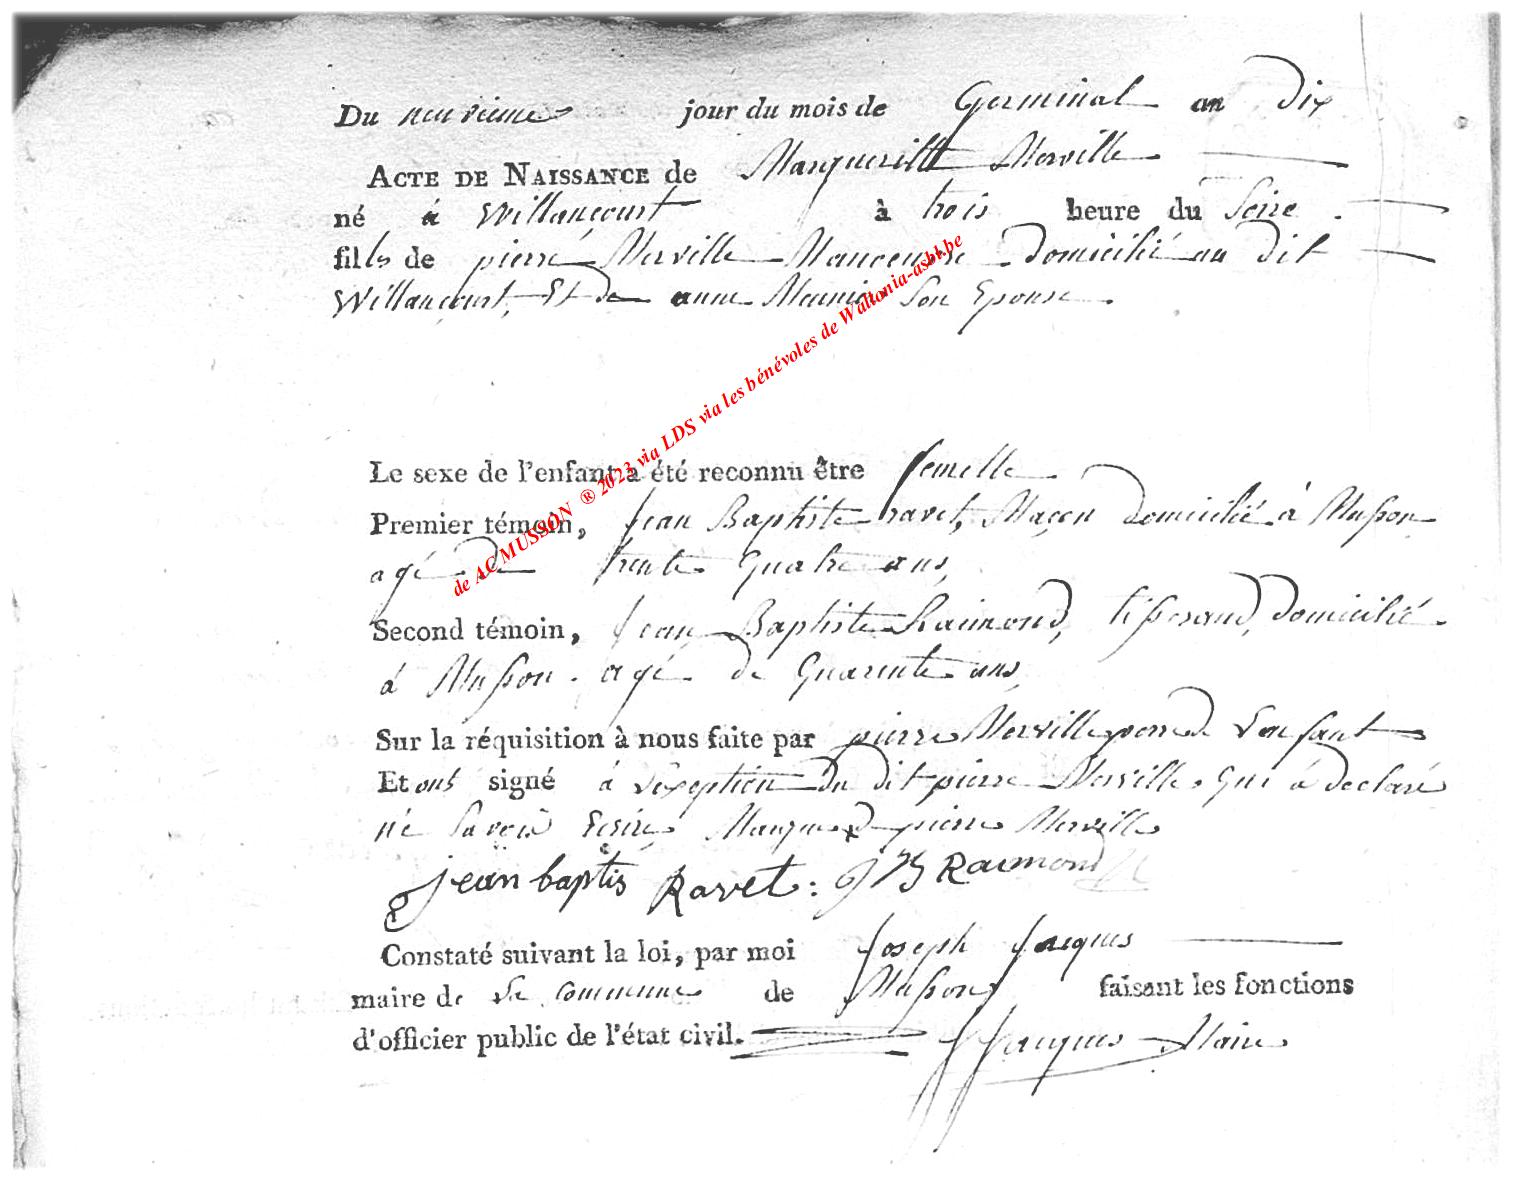 Du neuvieme jour du mois de Germinal an Dix
ACTE DE NAISSANCE de Margueritte Merville
né à Willancourt à trois heure du Soire
filles de pierre Merville Manoeuvre Domicilié au dit
Willancourt, Et de anne Meunier Son Epouse
Le sexe de l'enfant a été reconnu être femelle
Premier témoin, Jean Baptiste ravet, Maçon domicilié à Musson
agé de trente Quatre ans,
Second témoin, Jean Baptiste Raimond, tisserand, domicilié
à Musson. agé de Quarente ans,
Sur la réquisition à nous faite par pierre Merville pere de L'enfant
Et ont signé à L'exeption Du dit pierre Merville, Qui à Declaré
ne Savoir Ecrire, Marque de pierre Merville
jean baptis Ravet : J B Raimond
Constaté suivant la loi, par moi Joseph Jacques
maire de La commune de Musson faisant les fonctions
d'officier public de l'état civil. JJacques Maire
de AC MUSSON ® 2023 via LDS via les bénévoles de Wallonia-asbl.be